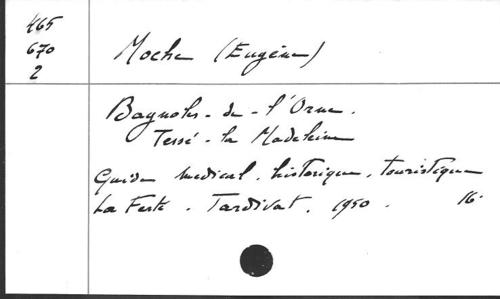 465
670
2
Moche (Eugène)
Bagnoles-de-l'Orne.
Tessé-la Madeleine
Guide medical, historique, touristique
La Ferté. Tardivat. 1950. 16.